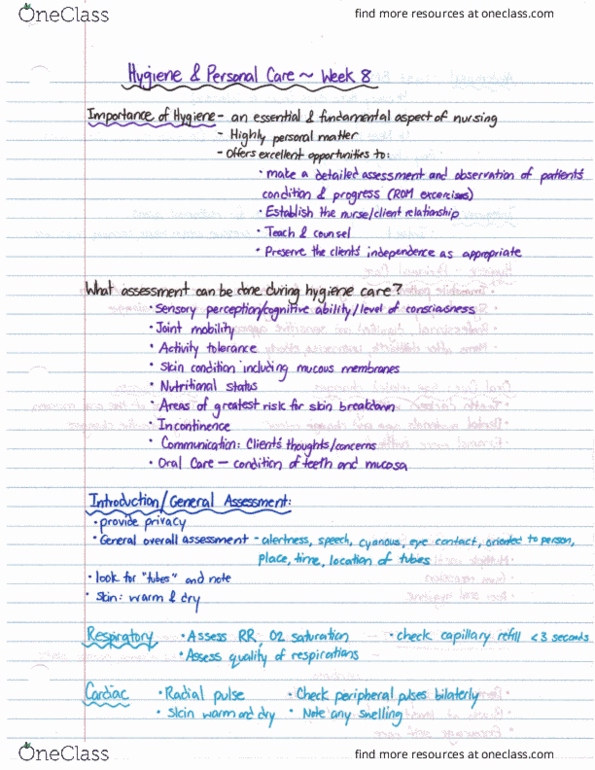 OneClass
find more resources at oneclass.com
Hygiene & Personal Care ~ Week 8
Importance of Hygiene - an essential & fundamental aspect of nursing
- Highly personal matter
- Offers excellent opportunities to:
• make a detailed assessment and observation of patients
condition & progress (ROM excercises)
• Establish the nurse/client relationship
• Teach & counsel
• Preserve the clients independence as appropriate
What assessment can be done during hygiene care?
• Sensory perception/cognitive ability/level of consciasness
• Joint mobility
• Activity tolerance
• Skin condition including mucous membranes
• Nutritional status
• Areas of greatest risk for skin breakdown
• Incontinence
• Communication: Client's thoughts/concerns
• Oral Care — condition of teeth and mucosa
Introduction/General Assessment:
• provide privacy
• General overall assessment - alertness, speech, cyanous, eye contact, oriented to person,
place, time, location of tubes
• look for "tubes" and note
• Skin: warm & dry
Respiratory • Assess RR, O2 saturation • check capillary refill <3 seconds
• Assess quality of respirations
Cardiac • Radial pulse • Check peripheral pulses bilaterly
• Skin warm and dry • Note any swelling
OneClass
find more resources at oneclass.com